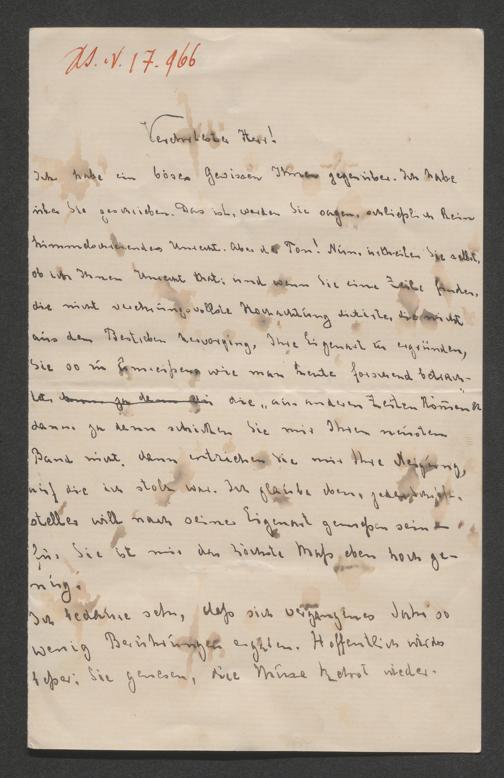 H.I.N. 17.966
Verehrtester Herr!
Ich habe ein böses Gewissen Ihnen gegenüber. Ich habe
über Sie geschrieben. Das ist, werden Sie sagen, schließlich kein
himmelschreiendes Unrecht. Aber der Ton! Nun, urtheilen Sie selbst,
ob ich Ihnen Unrecht that: und wenn Sie eine Zeile finden,
die nicht verehrungsvollste Hochachtung dictirte, die nicht
aus dem Bestreben hervorging, Ihre Eigenart zu ergründen,
Sie so zu wie man Leute forschend betrach-
tet die „aus anderen Zeiten kommen
dann, ja dann schicken Sie mir Ihren neusten
Band nicht, dann entziehen Sie mir Ihre Neigung,
auf die ich stolz war. Ich glaube eben, jeder Schrift-
steller will nach seiner Eigenart gemessen sein –
für Sie ist mir das höchste Maß eben hoch ge-
nug.
Ich bedaure sehr, daß sich vergangenes Jahr so
wenig Berührungen ergaben. Hoffentlich wirds
besser: Sie genesen, die Muse kehrt wieder.